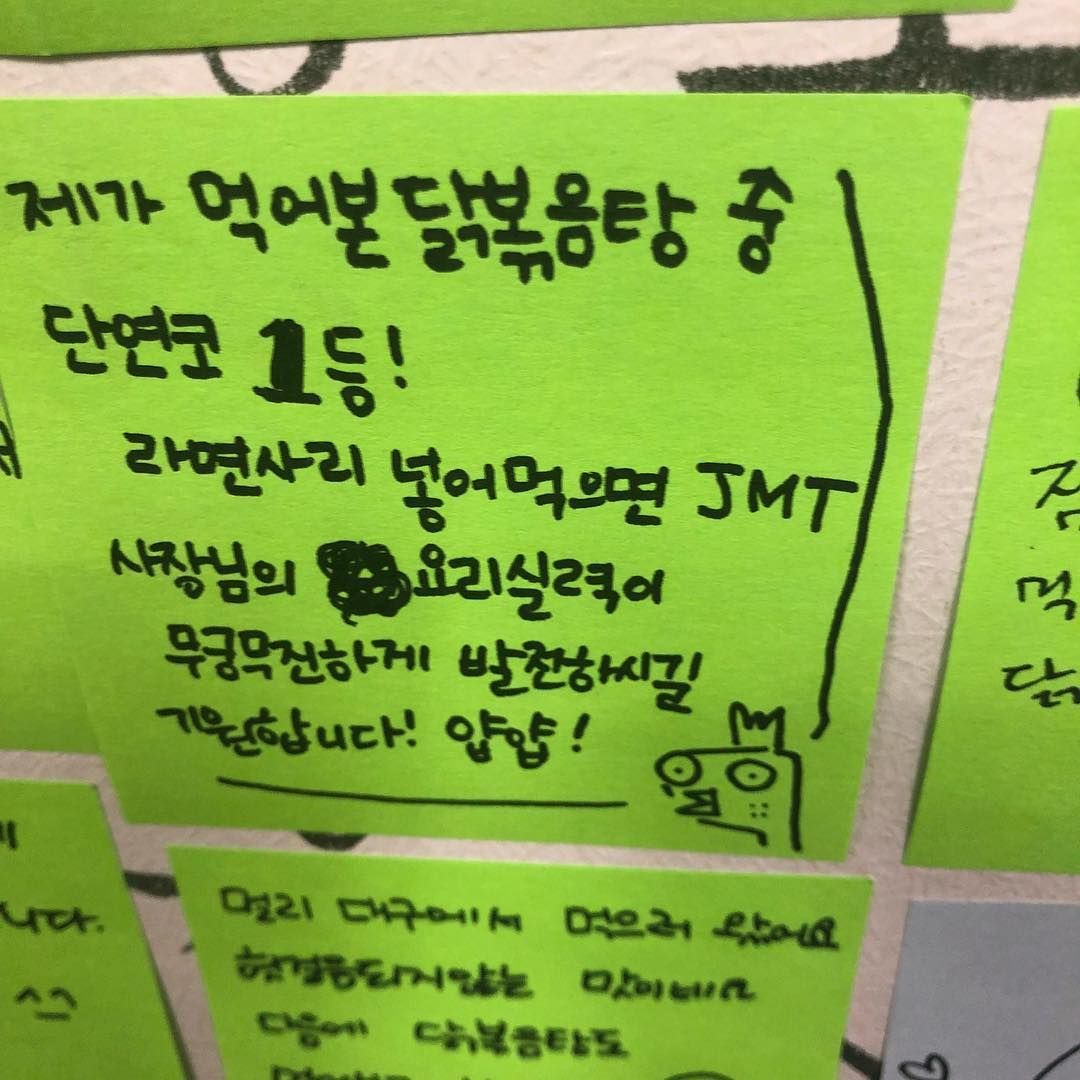 제가 먹어본 닭볶음탕 중
단연코 1등!
라면사리 넣어먹으면 JMT
사장님의 요리실력이
무궁무진하게 발전하시길
기원합니다! 얍얍!
니다.
^^
멀리 대구에서 먹으러 왔어요
헛걸음되지않는 맛이네요
다음에 닭볶음탕도
먹